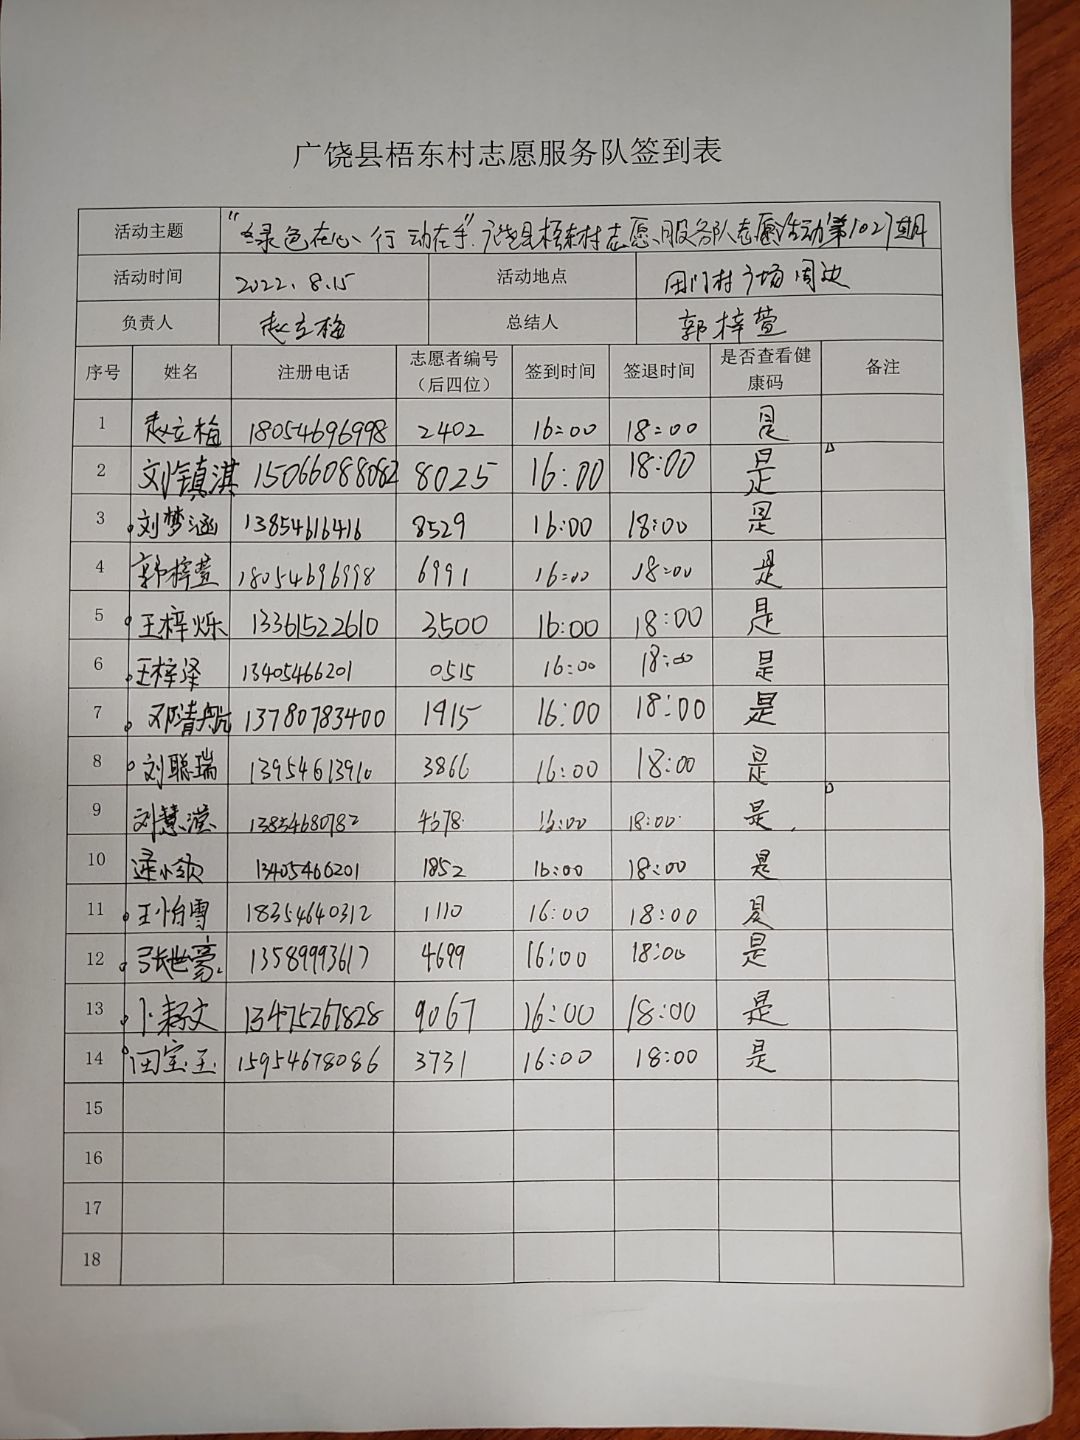 广饶县梧东村志愿服务队签到表
活动主题 “绿色在心、行动在手”广饶县梧东村志愿服务队志愿活动第1027期
活动时间 2022.8.15 活动地点 田门村广场周边
负责人 赵立梅 总结人 郭梓萱
序号 姓名 注册电话 志愿者编号（后四位） 签到时间 签退时间 是否查看健康码 备注
1 赵立梅 18054696998 2402 16:00 18:00 是
2 刘镇淇 15066088082 8025 16:00 18:00 是
3 刘梦涵 13854616416 8529 16:00 18:00 是
4 郭梓萱 18054696998 6991 16:00 18:00 是
5 王梓烁 13361522610 3500 16:00 18:00 是
6 王梓泽 13405466201 0515 16:00 18:00 是
7 邓清航 13780783400 1915 16:00 18:00 是
8 刘聪瑞 13954613910 3866 16:00 18:00 是
9 刘慧滢 13854680782 4378 16:00 18:00 是
10 13405466201 1852 16:00 18:00 是
11 王怡雪 18354640312 1110 16:00 18:00 是
12 张世豪 13589993617 4699 16:00 18:00 是
13 卜耔文 13475267828 9067 16:00 18:00 是
14 田宝玉 15954678086 3731 16:00 18:00 是
15
16
17
18